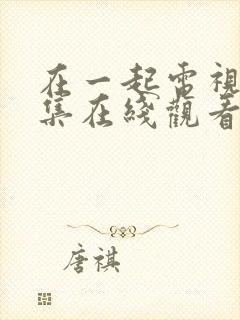 在一起電視
集在綫觀看
唐祺